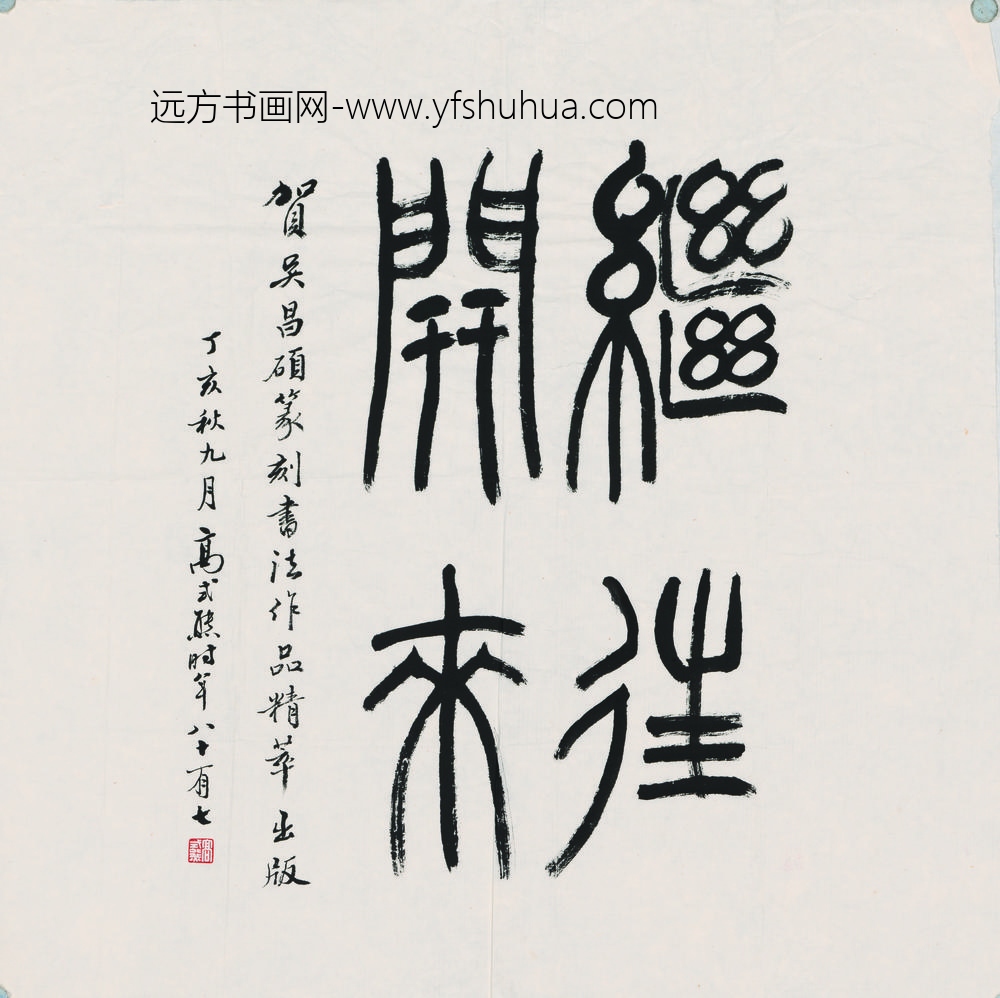 远方书画网-www.yfshuhua.com
繼往
開來
賀吴昌碩篆刻書法作品精萃出版
丁亥秋九月高式熊時年八十有七